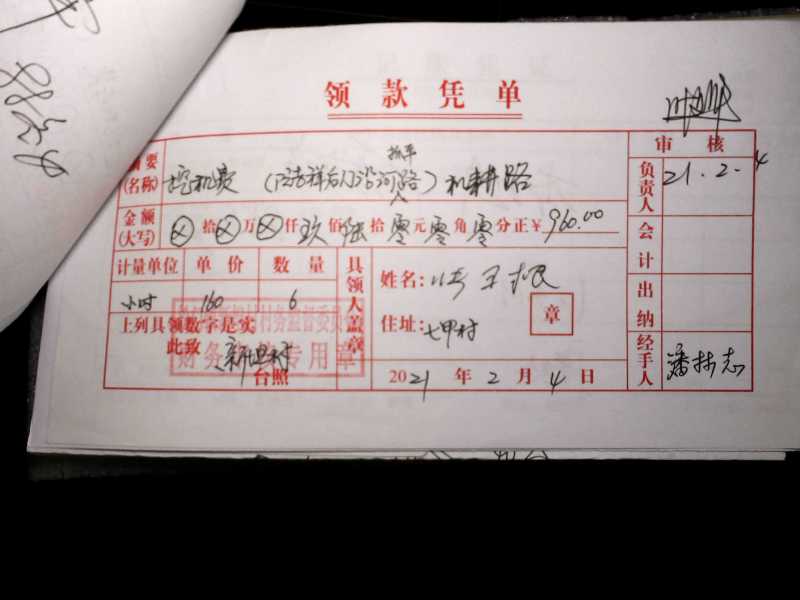 领款凭单
审核
摘要(名称) 挖机费 (后门沿河路) 机耕路
负责人 21.2.4
金额(大写) ⊗拾⊗万⊗仟玖佰陆拾零元零角零分正¥960.00
会计
计量单位 单价 数量
具领人盖章
姓名:
小时 160 6
出纳
章
上列具领数字是实
住址: 七甲村
此致
财务 专用章
台照
2021年2月4日
经手人 潘林志